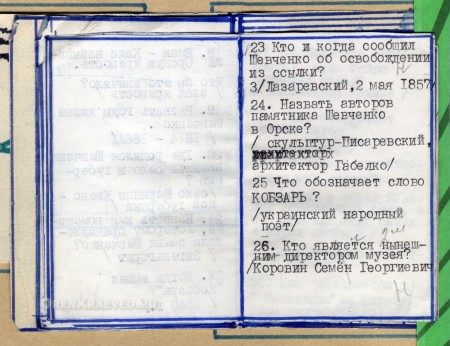 23 Кто и когда сообщил
Шевченко об освобождении
из ссылки?
3/Лазаревский, 2 мая 1857
24. Назвать авторов
памятника Шевченко
в Орске?
/ скульптур-Писаревский,
архитектор Габелко/
25 Что обозначает слово
КОБЗАРЬ ?
/украинский народный
поэт/
26. Кто является нынеш-
ним директором музея?
/Коровин Семён Георгиевич